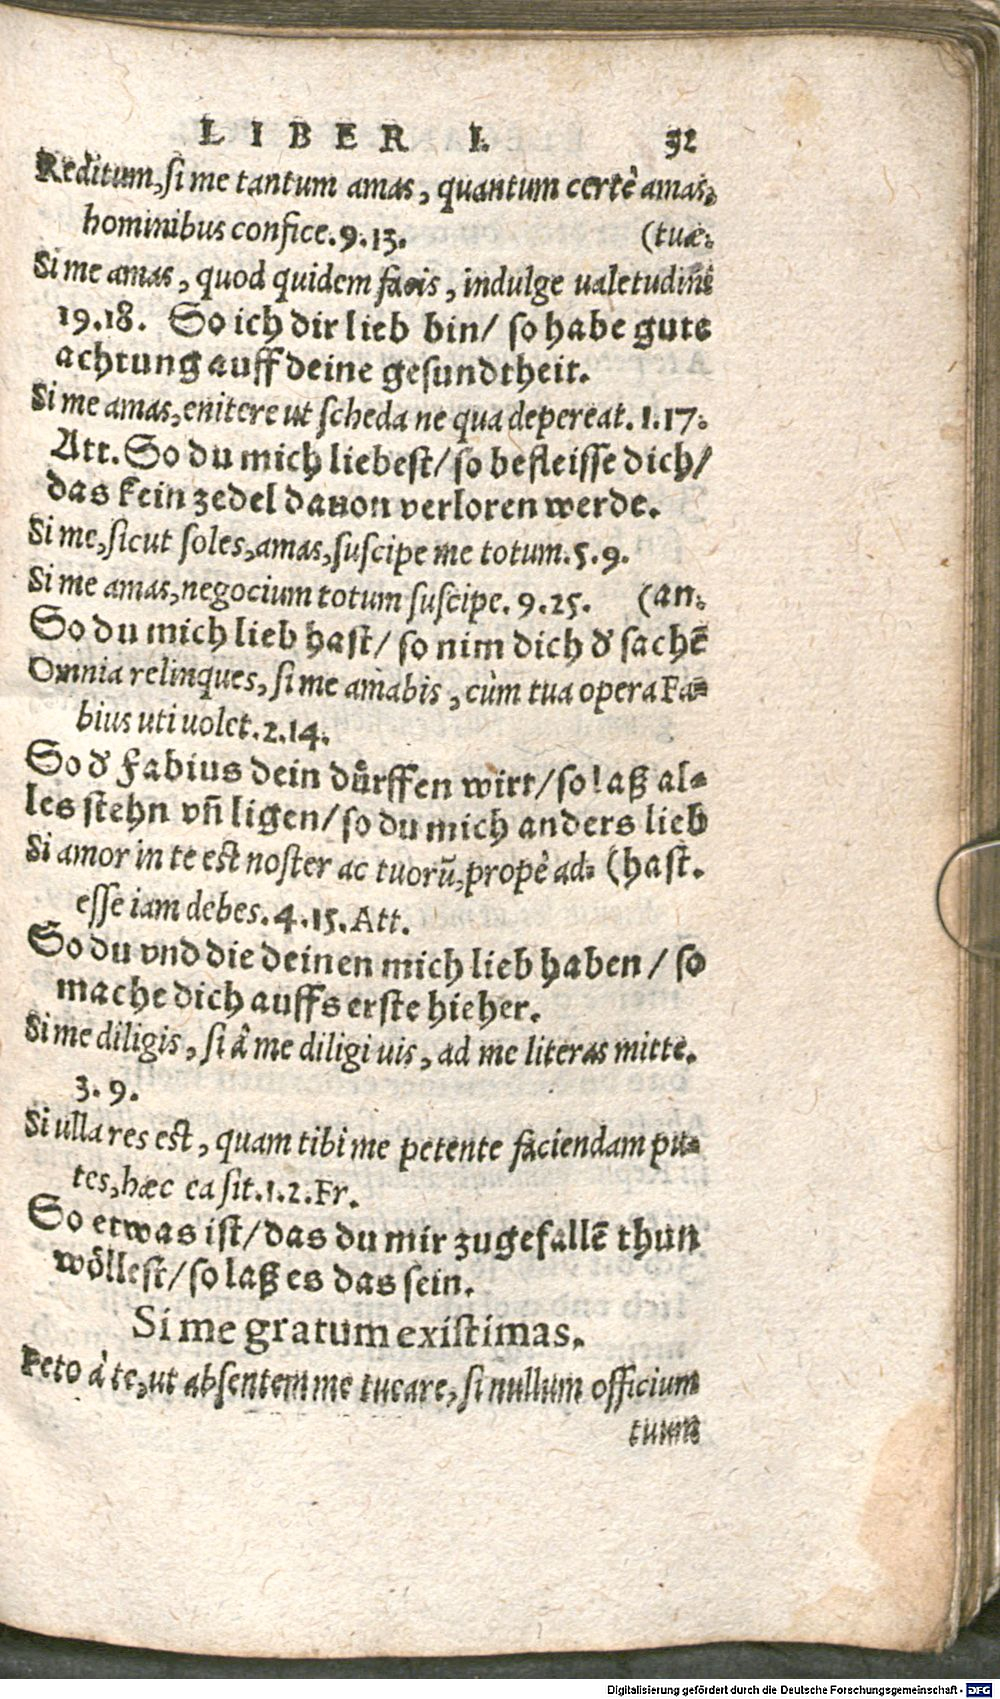 LIBER I. 32
Reditum, si me tantum amas, quantum certè amas,
hominibus confice. 9. 13. (tuæ.
Si me amas, quod quidem facis, indulge ualetudini
19. 18. So ich dir lieb bin/ so habe gute
achtung auff deine gesundtheit.
Si me amas, enitere ut scheda ne qua depereat. 1. 17.
Att. So du mich liebest/ so befleisse dich/
das kein zedel dauon verloren werde.
Si me, sicut soles, amas, suscipe me totum. 5. 9.
Si me amas, negocium totum suscipe. 9. 25. (an.
So du mich lieb hast/ so nim dich d̕ sachē
Omnia relinques, si me amabis, cùm tua opera Fa=
bius uti uolet. 2. 14.
So d̕ Fabius dein dürffen wirt/ so laß al=
les stehn vñ ligen/ so du mich anders lieb
Si amor in te est noster ac tuorũ, propè ad= (hast.
esse iam debes. 4. 15. Att.
So du vnd die deinen mich lieb haben / so
mache dich auffs erste hieher.
Si me diligis, si â me diligi uis, ad me literas mitte.
3. 9.
Si ulla res est, quam tibi me petente faciendam pu=
tes, hæc ea sit. 1. 2. Fr.
So etwas ist/ das du mir zugefallē thun
wöllest/ so laß es das sein.
Si me gratum existimas.
Peto à te, ut absentem me tueare, si nullum officium
tuum
Digitalisierung gefördert durch die Deutsche Forschungsgemeinschaft - DFG